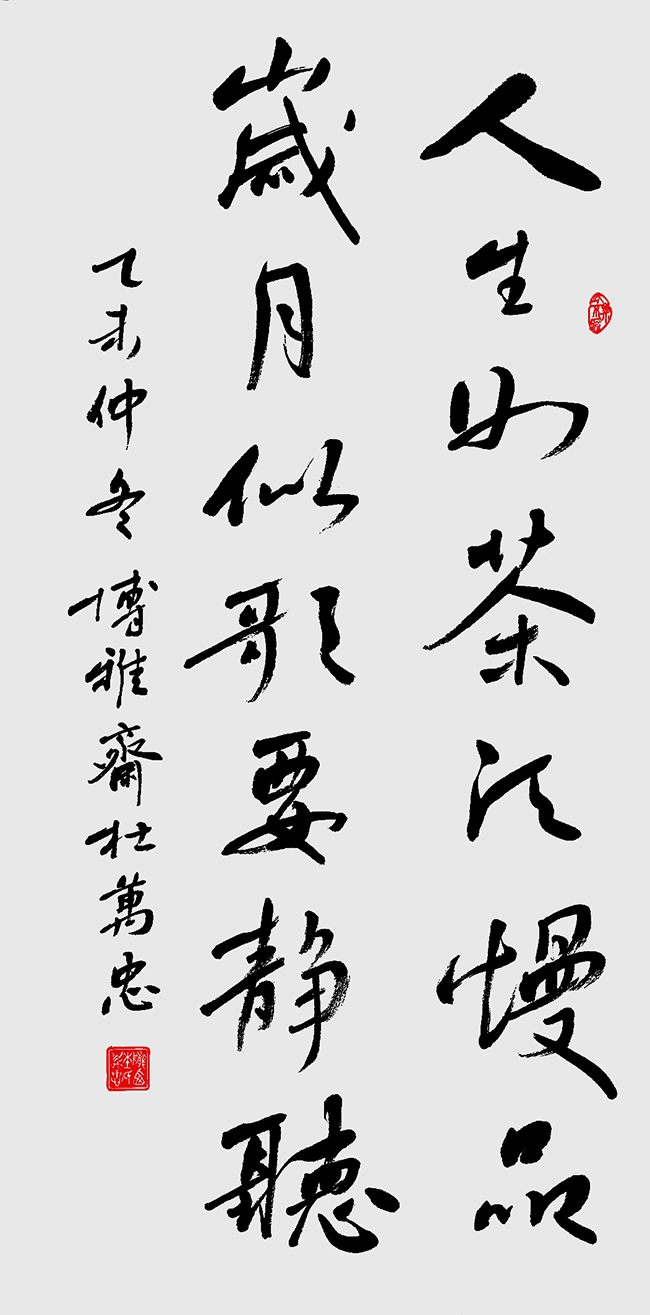 人生如茶須慢品
歲月似歌要静聽
乙未仲冬博雅齋杜萬忠